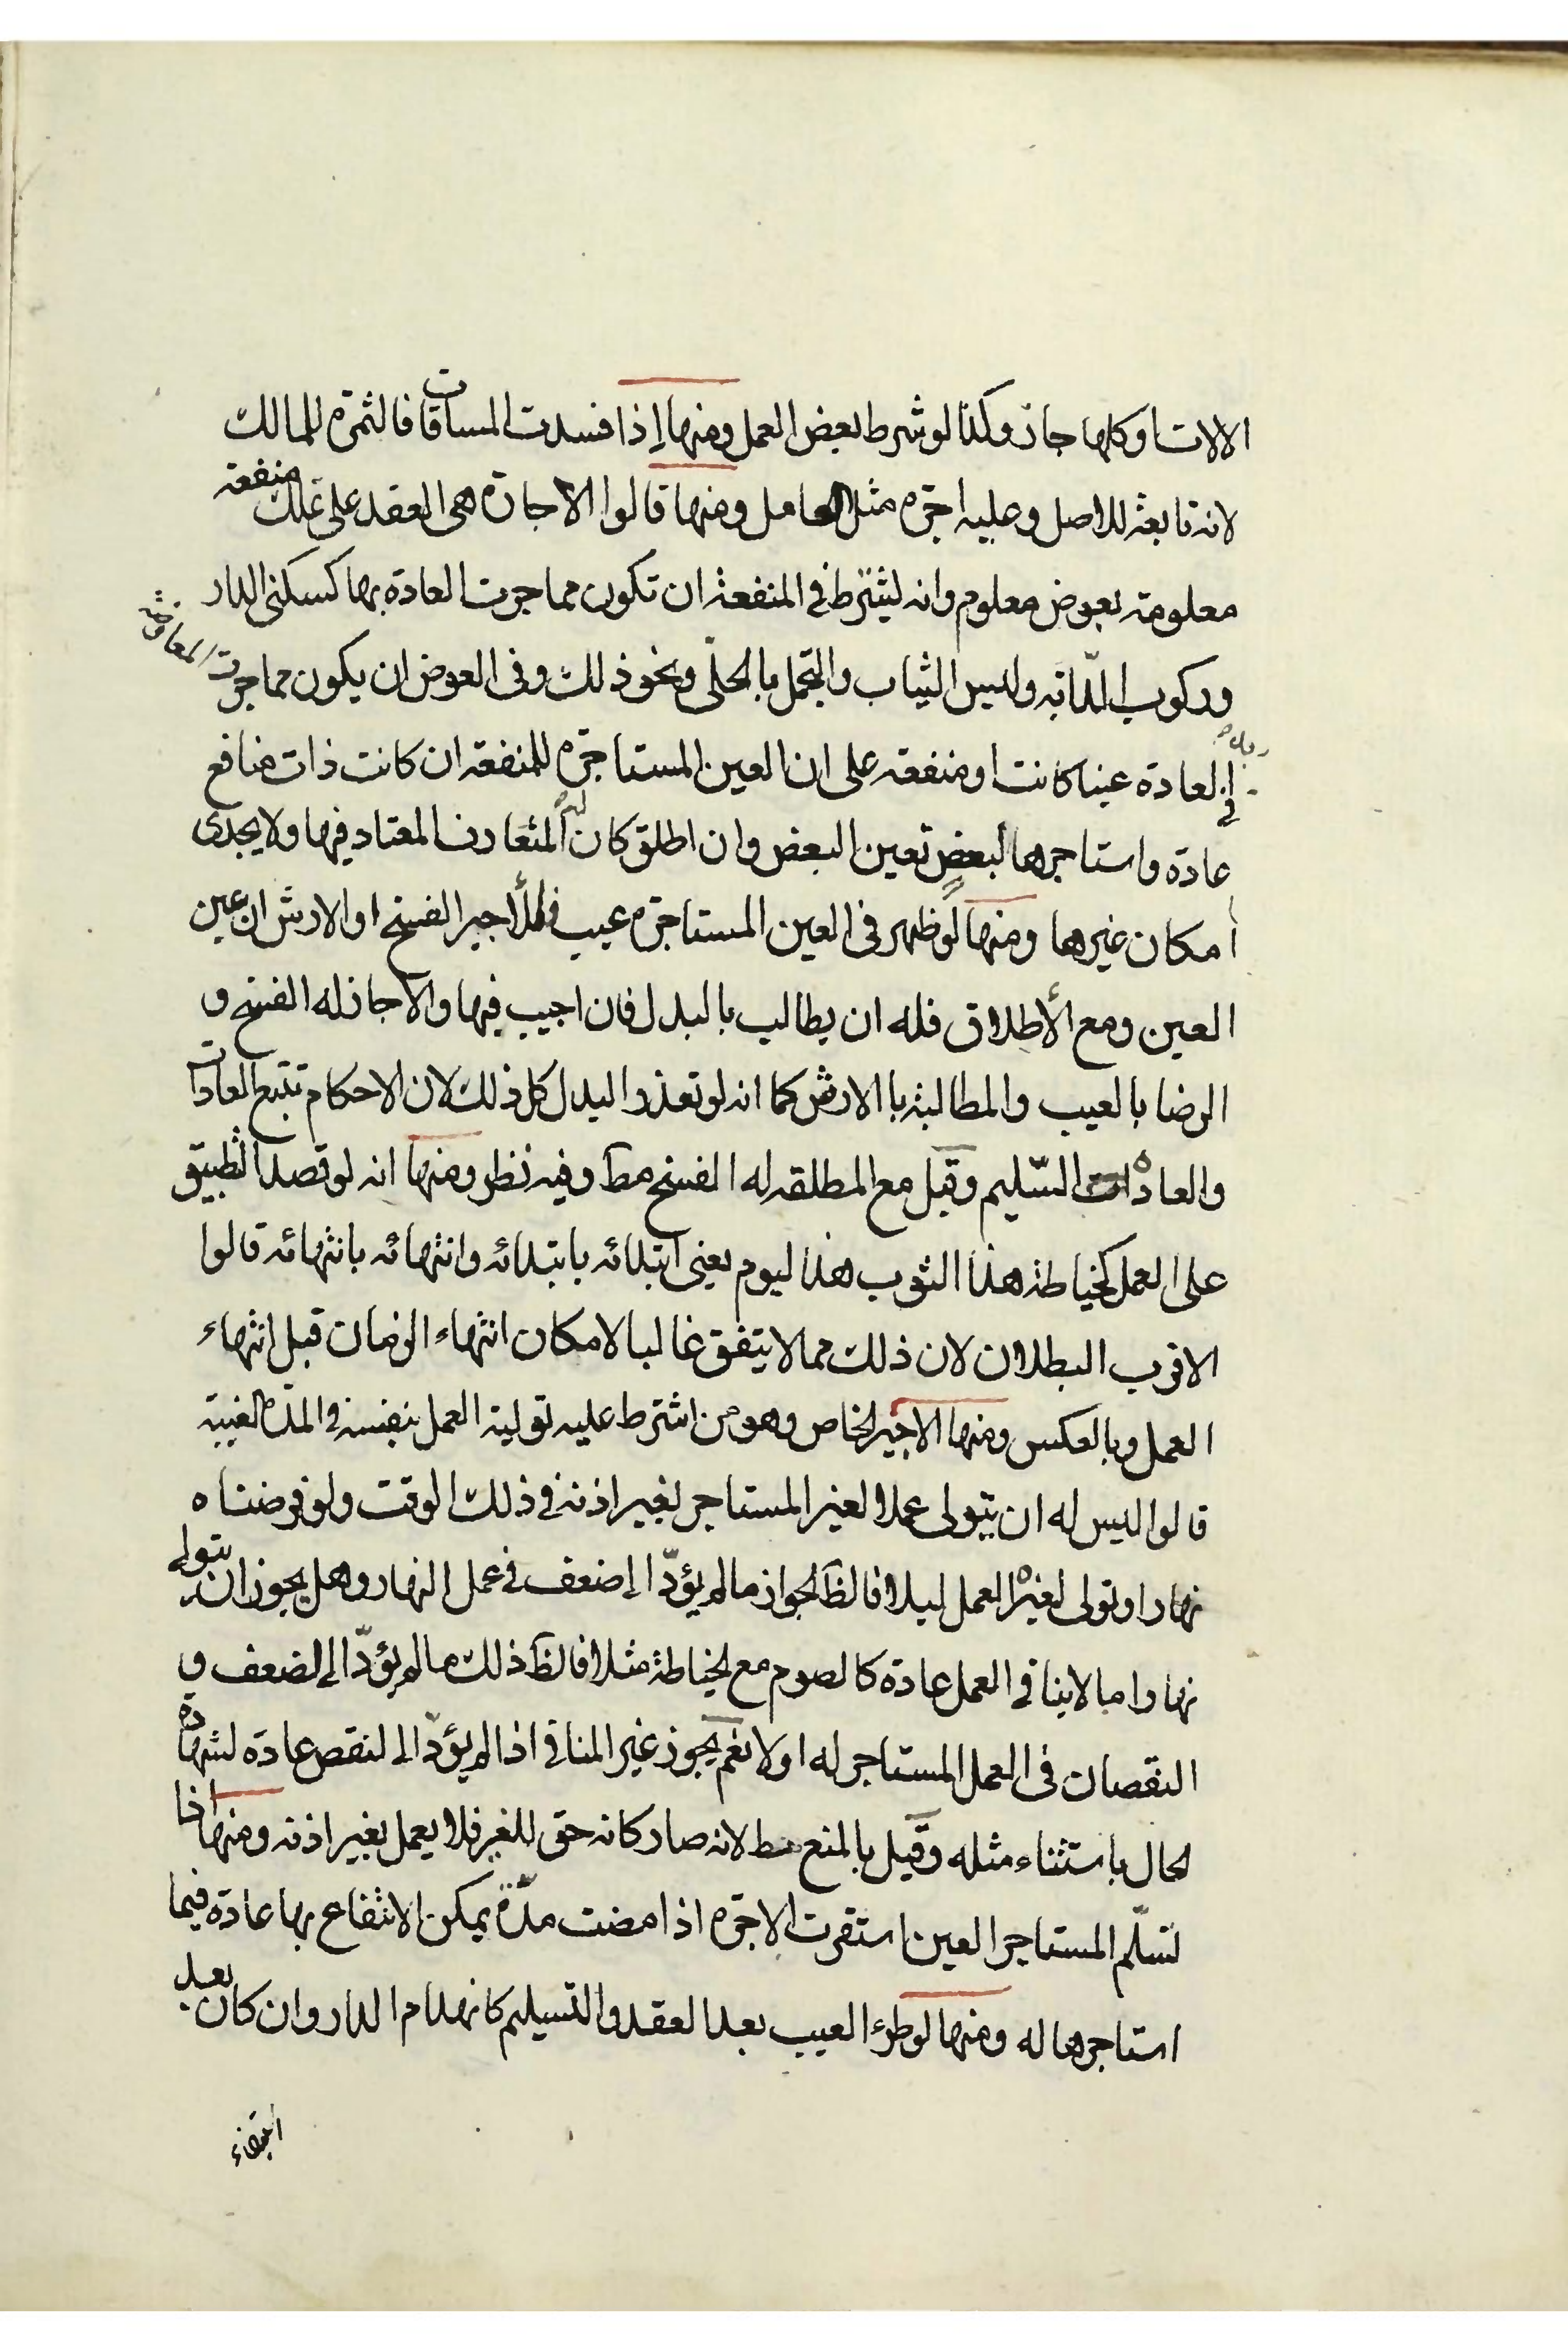 الالات وكلها جاز وكذا لو شرط بعض العمل ومنها إذا فسدت المساقات فالثمرة للمالك
لانه تابعة للاصل وعليه اجرة مثل العامل ومنها قالوا الاجارة هي العقد على تملك منفعة
معلومة بعوض معلوم وانه ليشترط في المنفعة ان تكون مما جرت العادة بها كسكنى الدار
وركوب الدّابة ولبس الثياب والتجمل بالحلّي ونحو ذلك وفى العوض ان يكون مما جرت المعاوضة
في العادة عينا كانت او منفعة على ان العين المستاجرة للمنفعة ان كانت ذات منافع
عادة واستاجرها لبعض تعين البعض وان اطلق كان المتعارف المعتاد فيها ولا يجدى
امكان غيرها ومنها لو ظهر فى العين المستاجرة عيب فللأجير الفسخ او الارش ان عين
العين ومع الأطلاق فله ان يطالب بالبدل فان اجيب فيها والا جاز له الفسخ و
الرضا بالعيب والمطالبة باالارش كما انه لو تعذر البدل كل ذلك لان الاحكام تتبع العادات
والعادة السّليم وقيل مع المطلقه له الفسخ مط وفيه نظر ومنها انه لو قصد التطبيق
على العمل كخياطة هذا الثوب هذا ليوم يعنى ابتدائه بابتدائه وانتهائه بانتهائه قالوا
الاقرب البطلان لان ذلك مما لا يتفق غالبا لامكان انتهاء الزمان قبل انتهاء
العمل وبالعكس ومنها الاجير الخاص وهو من اشترط عليه تولية العمل بنفسه في المدة المعينة
قالوا ليس له ان يتولى عملا لغير المستاجر بغير اذنه في ذلك الوقت ولو فرضناه
نهارا وتولى لغيره العمل ليلا فالظ الجواز ما لم يؤدّ الى ضعف في عمل النهار وهل يجوز ان يتولى
نهارا ما لا ينافي العمل عادة كالصوم مع الخياطة مثلا فالظ ذلك ما لم يؤدّ الى الضعف و
النقصان فى العمل المستاجر له او لا نعم يجوز غير المنافي اذا لم يؤدّ الى لنقص عادة لشهادة
لحال باستثناء مثله وقيل بالمنع مط لانه صار كانه حق للغير فلا يعمل بغير اذنه ومنها اذا
تسلّم المستاجر العين استقرت الاجرة اذا مضت مدّة يمكن الانتفاع بها عادة فيما
استاجرها له ومنها لو طرء العيب بعد العقد والتسيليم كانهدام الدار وان كان بعد